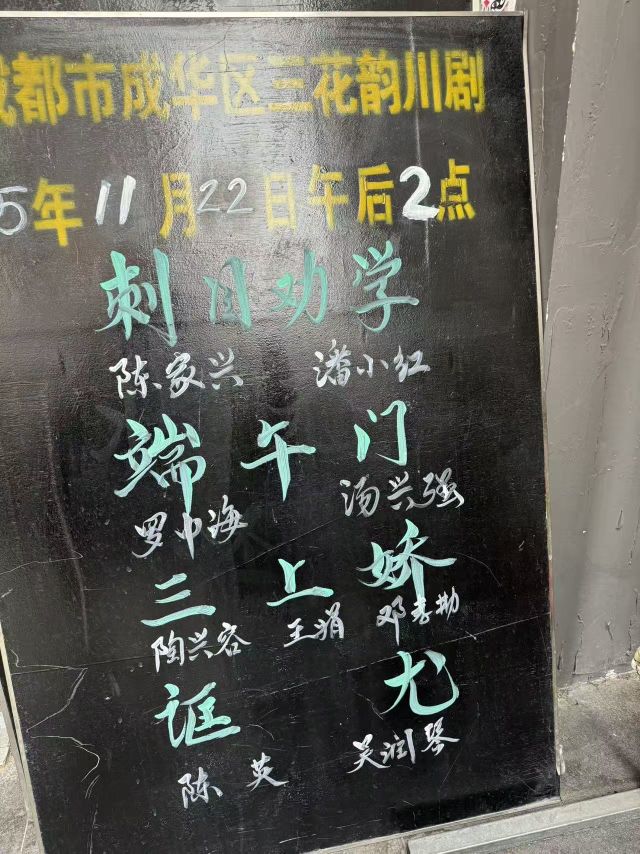 都市成华区三花韵川剧
5年11月22日午后2点
刺目劝学
陈家兴 潘小红
端午门
罗中海 汤兴强
三上娇
陶兴容 王娟 邓孝勘
诓尤
陈英 吴润琴